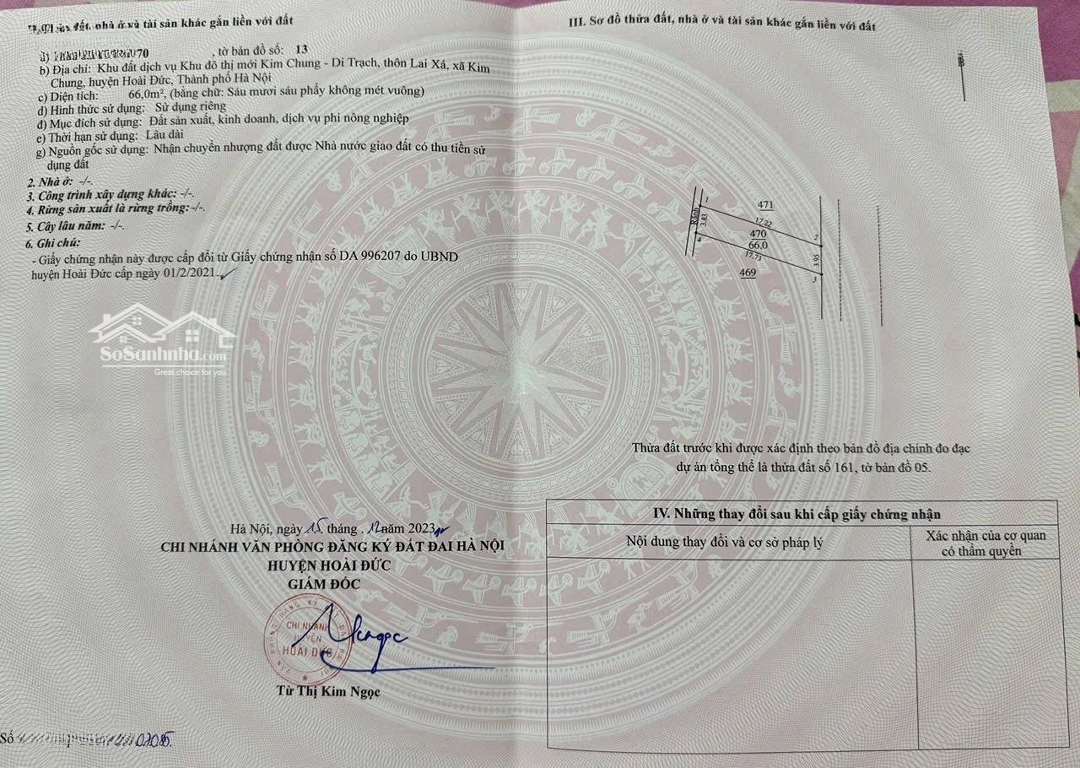 đất, nhà ở và tài sản khác gắn liền với đất
70 , tờ bản đồ số: 13
b) Địa chỉ: Khu đất dịch vụ Khu đô thị mới Kim Chung - Di Trạch, thôn Lai Xá, xã Kim
Chung, huyện Hoài Đức, Thành phố Hà Nội
c) Diện tích: 66,0m², (bằng chữ: Sáu mươi sáu phẩy không mét vuông)
d) Hình thức sử dụng: Sử dụng riêng
đ) Mục đích sử dụng: Đất sản xuất, kinh doanh, dịch vụ phi nông nghiệp
e) Thời hạn sử dụng: Lâu dài
g) Nguồn gốc sử dụng: Nhận chuyển nhượng đất được Nhà nước giao đất có thu tiền sử
dụng đất
2. Nhà ở: -/-.
3. Công trình xây dựng khác: -/-.
4. Rừng sản xuất là rừng trồng:-/-.
5. Cây lâu năm: -/-.
6. Ghi chú:
- Giấy chứng nhận này được cấp đổi từ Giấy chứng nhận số DA 996207 do UBND
huyện Hoài Đức cấp ngày 01/2/2021.
SoSanhnha.com
Great choice for you
Hà Nội, ngày 15 tháng . 12 năm 2023
CHI NHÁNH VĂN PHÒNG ĐĂNG KÝ ĐẤT ĐAI HÀ NỘI
HUYỆN HOÀI ĐỨC
GIÁM ĐỐC
CHI NHÁNH
HUYỆN
HOÀI ĐỨC
Từ Thị Kim Ngọc
Số
III. Sơ đồ thửa đất, nhà ở và tài sản khác gắn liền với đất
B
471
1
Rãnh
3.83
17.22
2
470
66,0
4
17.73
3.95
3
469
Thửa đất trước khi được xác định theo bản đồ địa chính đo đạc
dự án tổng thể là thửa đất số 161, tờ bản đồ 05.
IV. Những thay đổi sau khi cấp giấy chứng nhận
Nội dung thay đổi và cơ sở pháp lý
Xác nhận của cơ quan
có thẩm quyền